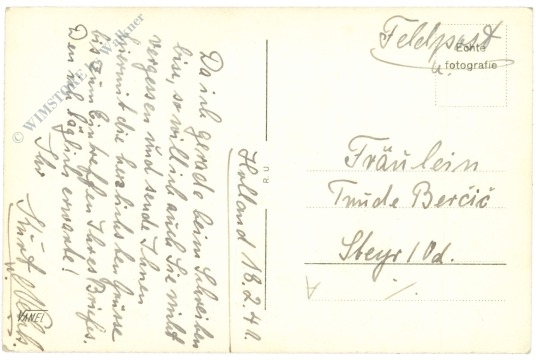 Holland 18.2.41.
Da ich gerade beim Schreiben
bin, so will ich auch Sie nicht
vergessen und sende Ihnen
hiermit die herzlichsten Grüsse
bis zum Eintreffen Ihres Briefes.
Den ich täglich erwarte!
Ihr
Kurt
Feldpost
Echte
fotografie
Fräulein
Trude Berčič
Steyr / Od.
R. U
VANEL
© WIMSTORE Walkner